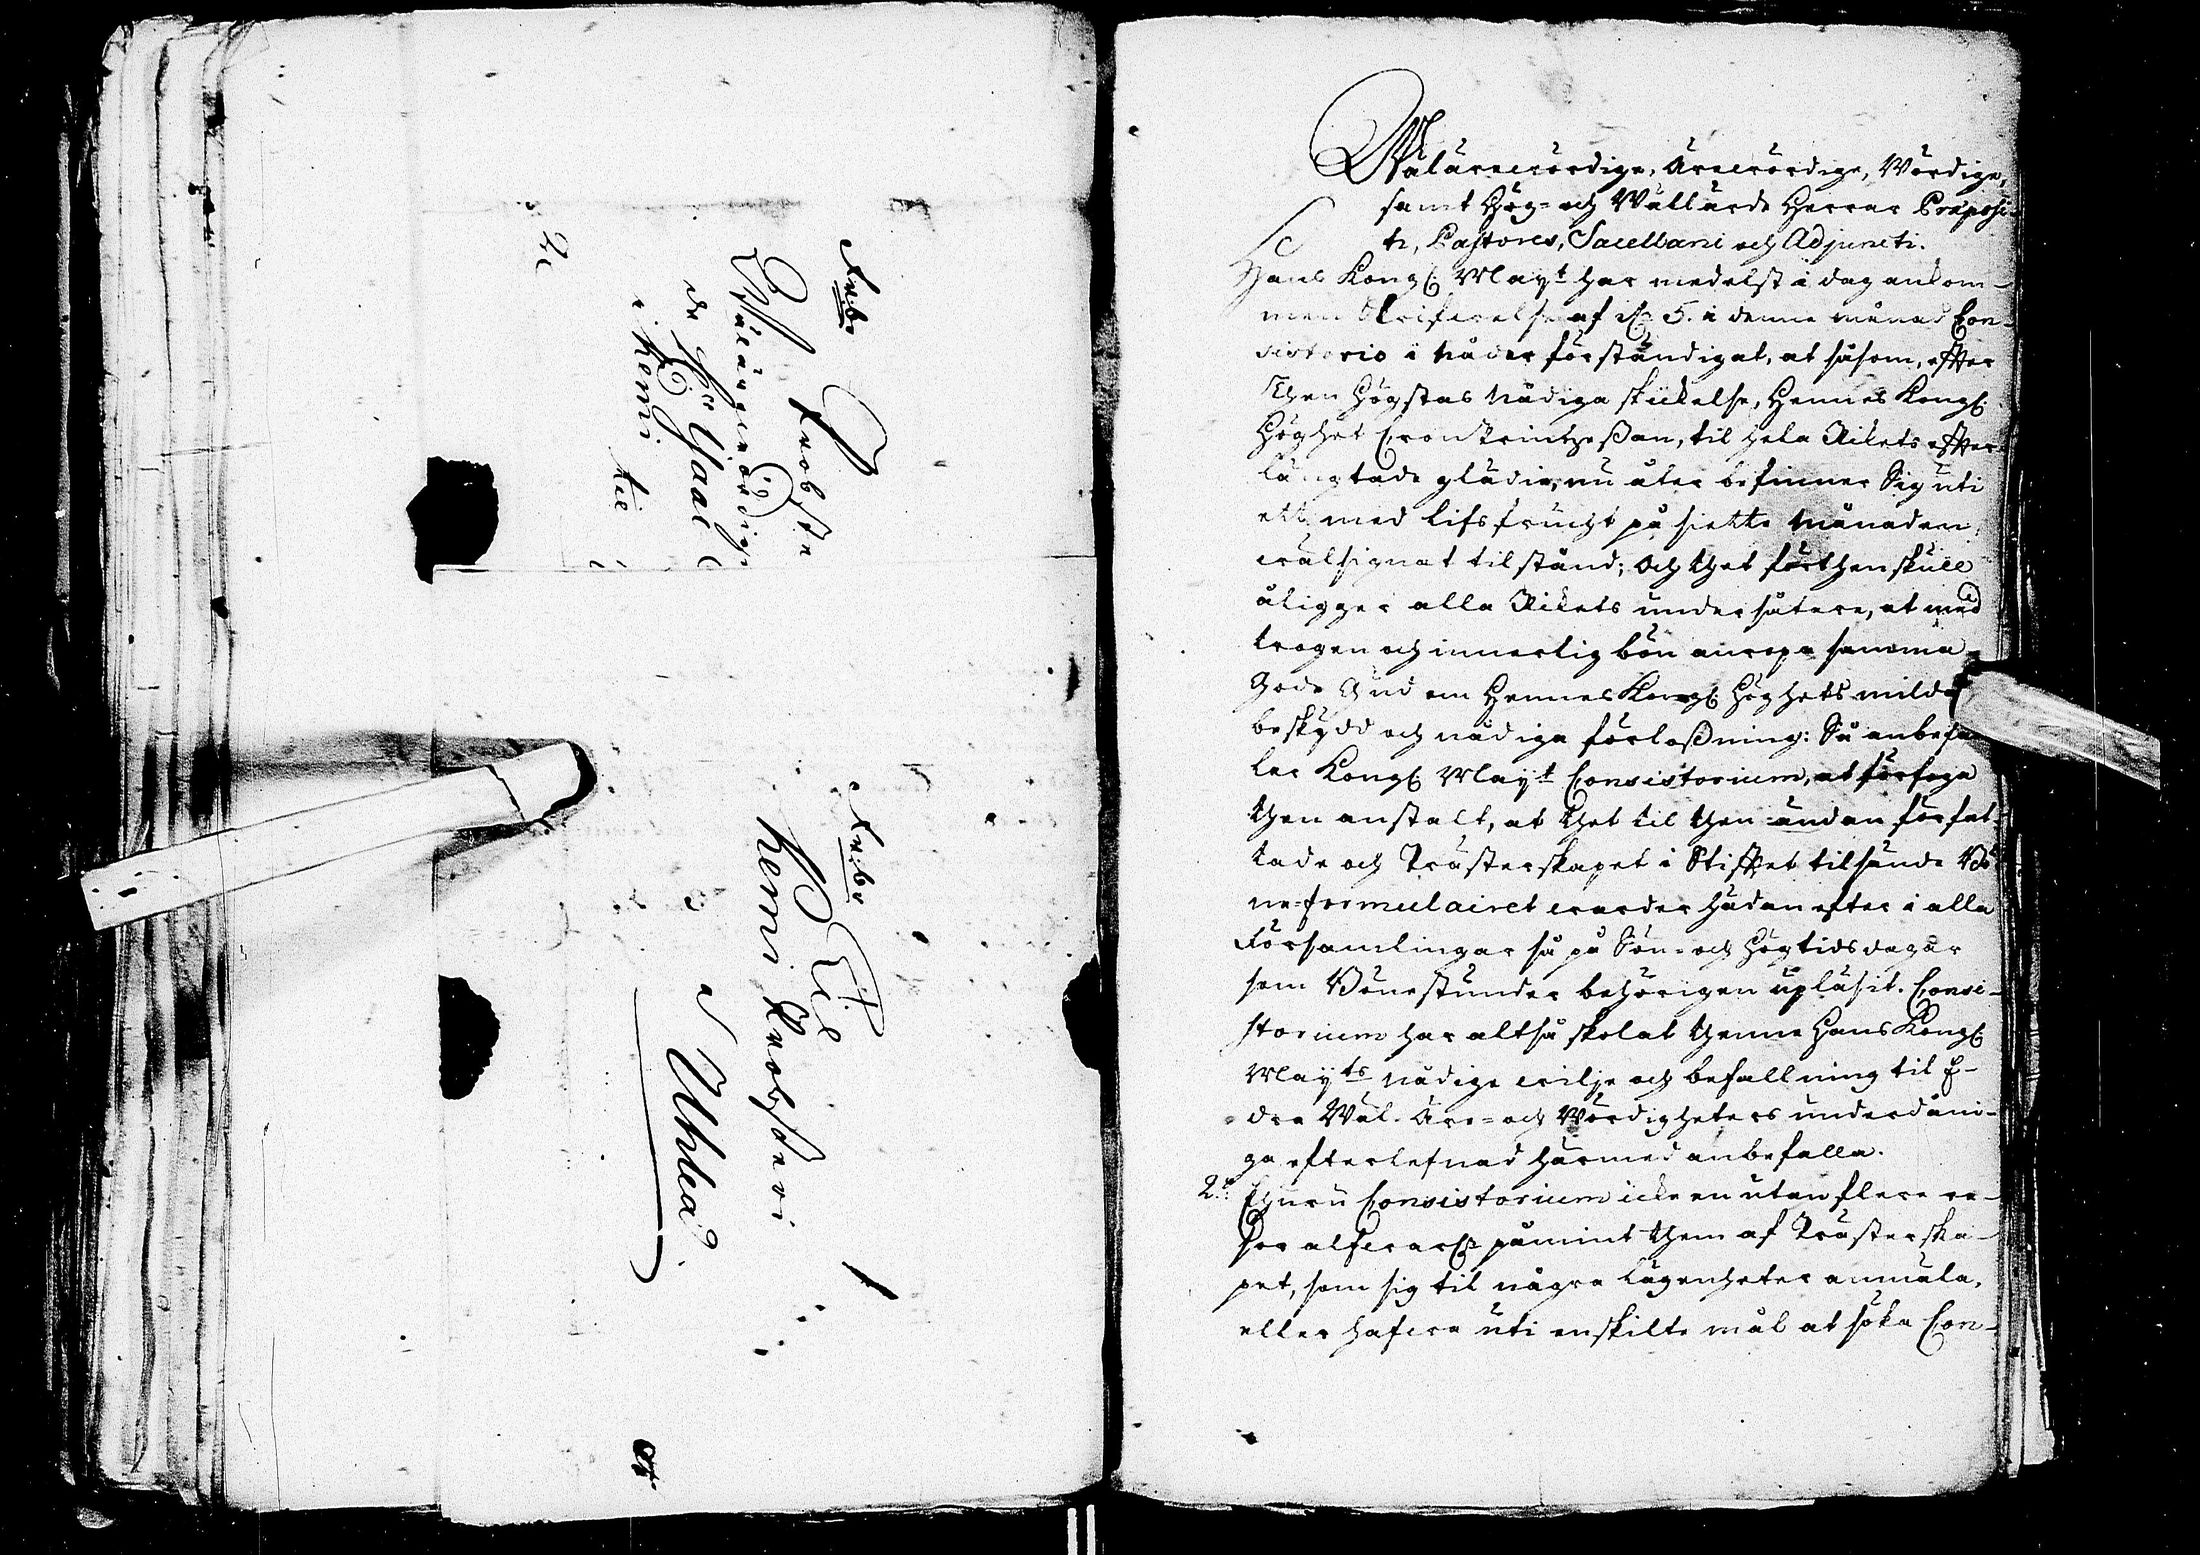 Probsten
Wälärewördige
H:r Gaal
i Kemi
Til
Kemi Probsteri
Uhleå
Wälärewördige, Ärewördige, Wördige,
samt Hög- och Wällärde Herrar Præposi-
ti, Pastores, Sacellani och Adjuncti.
Hans Kongl. May:t har medelst i dag ankom-
men Skrifwelse af d. 5. i denne månad Con-
sistorio i Nåder förständigat, at såsom, effter
Then Högstas Nådiga skickelse, Hennes Kongl.
Höghet Cron Printzeßan, til hela Rikets effter-
längtade glädie, nu åter befinner Sig uti
ett med lifsfrucht på siette månaden
wälsignat tilstånd; och thet förthenskull
åligger alla Rikets undersåtare, at med
trogen och innerlig bön anropa samma
Gode Gud om Hennes Kongl. Höghets milde
beskydd och nådiga förloßning: Så anbefal-
ler Kongl. May:t Consistorium, at förfoga
then anstalt, at thet til then ändan förfat-
tade och Prästerskapet i Stifftet tilsände Bö-
ne-formulairet warder hädan efter i alla
Församlingar så på Sön- och Högtidsdagar
som Bönestunder behörigen upläsit. Consi-
storium har altså skolat thenne Hans Kongl.
May:ts nådige wilje och befallning til E-
dra Wäl- Äre- och Wördigheters underdåni-
ga efterlefnad härmed anbefalla.
2:o Ehuru Consistorium icke en utan flere re-
sor alfwarl. påmint them af Prästerska-
pet, som sig til några lägenheter anmäla,
eller hafwa uti enskilte mål at söka Con-